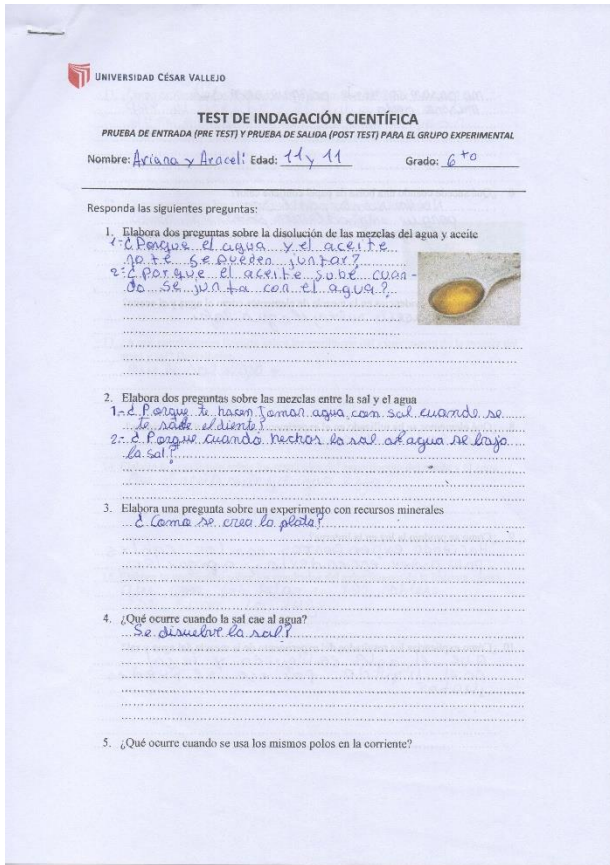 UNIVERSIDAD CÉSAR VALLEJO
TEST DE INDAGACIÓN CIENTÍFICA
PRUEBA DE ENTRADA (PRE TEST) Y PRUEBA DE SALIDA (POST TEST) PARA EL GRUPO EXPERIMENTAL
Nombre: Ariana y Araceli Edad: 11 y 11 Grado: 6to
Responda las siguientes preguntas:
1. Elabora dos preguntas sobre la disolución de las mezclas del agua y aceite
1-¿Porque el agua y el aceite
no te se pueden juntar?
2-¿Porque el aceite sube cuan-
do se junta con el agua?
2. Elabora dos preguntas sobre las mezclas entre la sal y el agua
1.-¿Porque te hacen tomar agua con sal cuando se
te sale el diente?
2.-¿Porque cuando hechas la sal al agua se baja
la sal?
3. Elabora una pregunta sobre un experimento con recursos minerales
¿Como se crea la plata?
4. ¿Qué ocurre cuando la sal cae al agua?
Se disuelve la sal?
5. ¿Qué ocurre cuando se usa los mismos polos en la corriente?